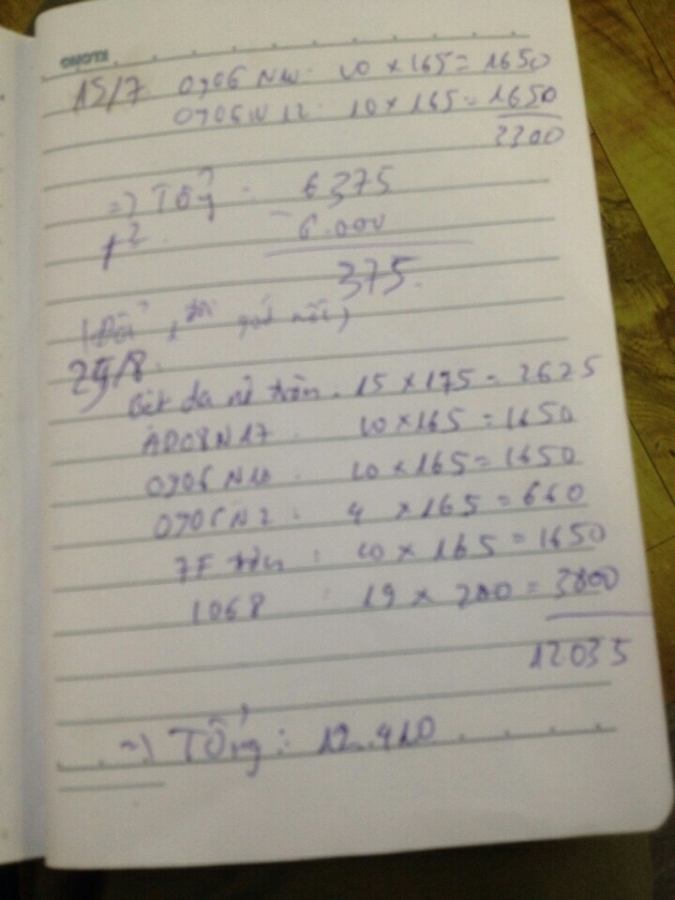 KLONG
15/7. 0706 N10: 10 x 165 = 1650
0706N12: 10 x 165 = 1650
3300
=) Tổng: 6375
- 6.000
375.
29/8.
15 x 175 = 2625
AD08N17. 10 x 165 = 1650
0706N10: 10 x 165 = 1650
0706N2: 4 x 165 = 660
7F trơn: 10 x 165 = 1650
1068: 19 x 200 = 3800
12035
=) Tổng: 12.410